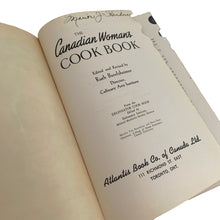 THE
Canadian Woman's
COOK BOOK
Edited and Revised by
Ruth Berolzheimer
Director,
Culinary Arts Institute
DELINEATOR COOK BOOK
Atlantis Book Co. of Canada Ltd.
111 RICHMOND ST. EAST
TORONTO, ONT.